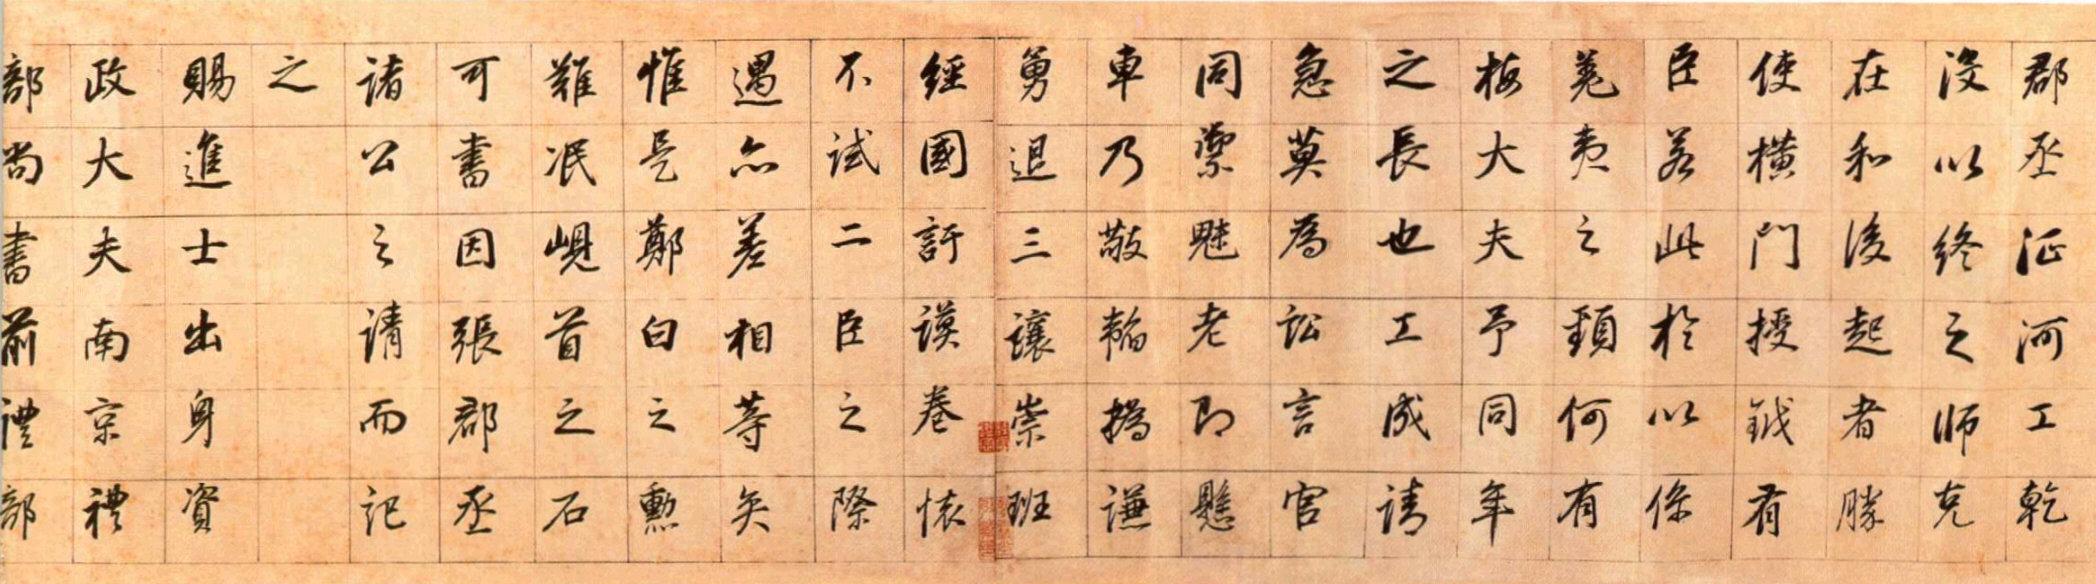 郡丞沍河工乾
没以終之師克
在和後起者勝
使橫門授鉞有
臣若此於以係
羌夷之頸何有
梅大夫予同年
之長也工成請
急莫為訟言官
同禦魅老即懸
車乃敬韜撝謙
勇退三讓崇班
經國訏謨卷懷
不試二臣之際
遇亦差相等矣
惟是鄭白之勳
難泯峴首之石
可書因張郡丞
諸公之請而記
之
賜進士出身資
政大夫南京禮
部尚書前禮部